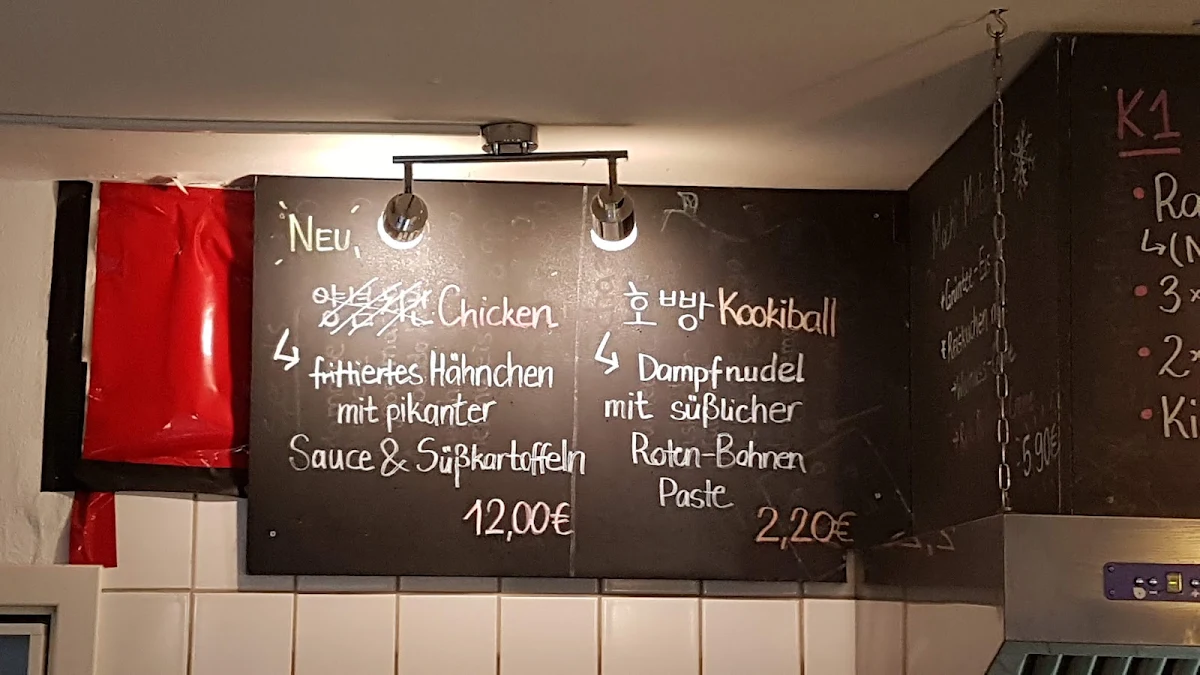 NEU
Chicken
↳ frittiertes Hähnchen
mit pikanter
Sauce & Süßkartoffeln
12,00€
호빵 Kookiball
↳ Dampfnudel
mit süßlicher
Roten-Bohnen
Paste
2,20€
5.90€
K1
• Ra
↳(N
• 3
• 2
• Ki